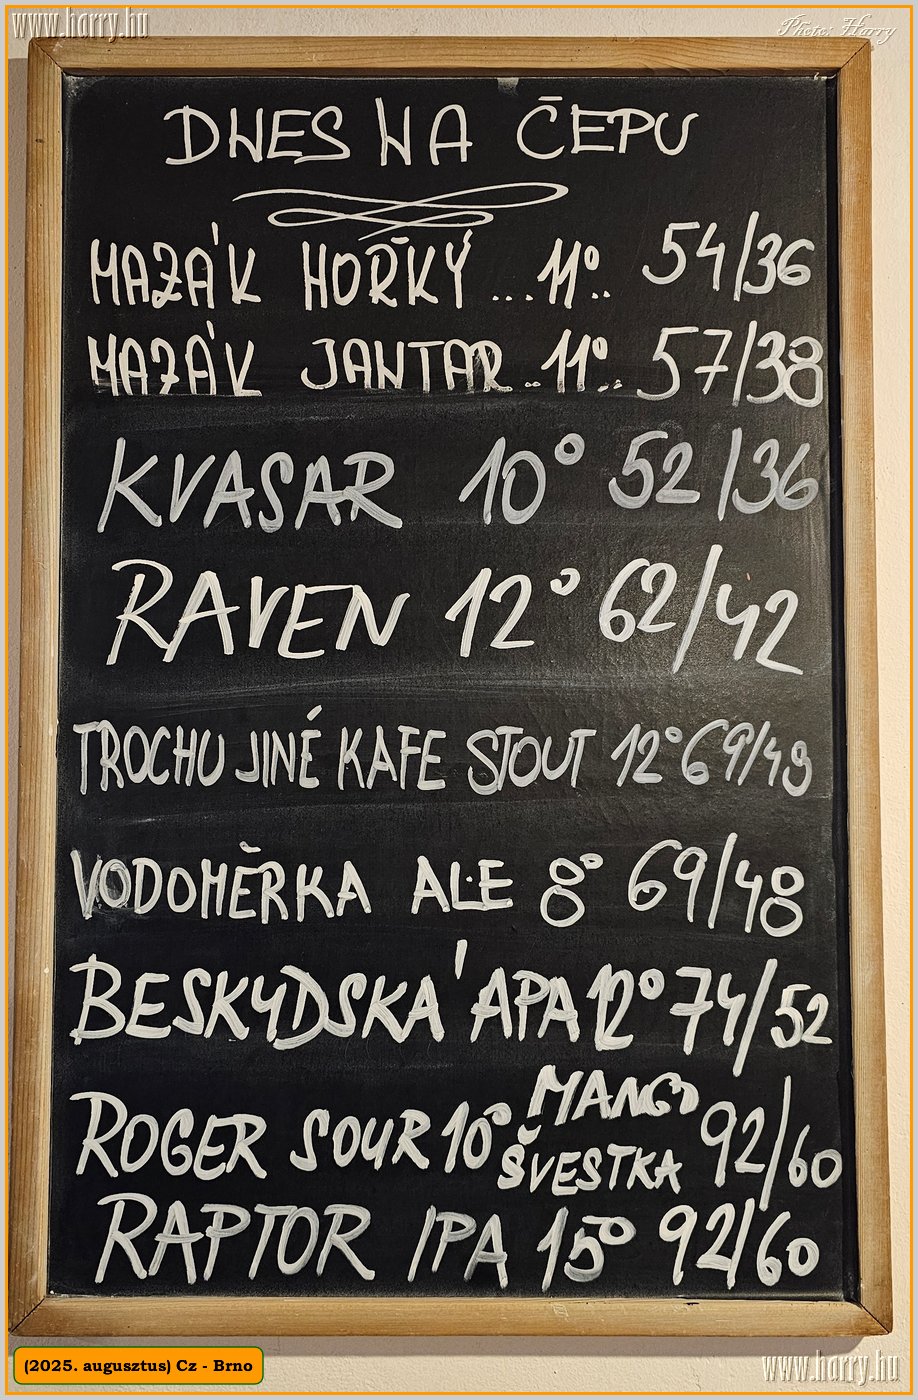 www.harry.hu
Photo: Harry
DNES NA ČEPU
MAZÁK HOŘKÝ ... 11° .. 54/36
MAZÁK JANTAR .. 11° .. 57/38
KVASAR 10° 52/36
RAVEN 12° 62/42
TROCHU JINÉ KAFE STOUT 12° 69/49
VODOMĚRKA ALE 8° 69/48
BESKYDSKÁ APA 12° 74/52
ROGER SOUR 10° MANGO ŠVESTKA 92/60
RAPTOR IPA 15° 92/60
(2025. augusztus) Cz - Brno
www.harry.hu